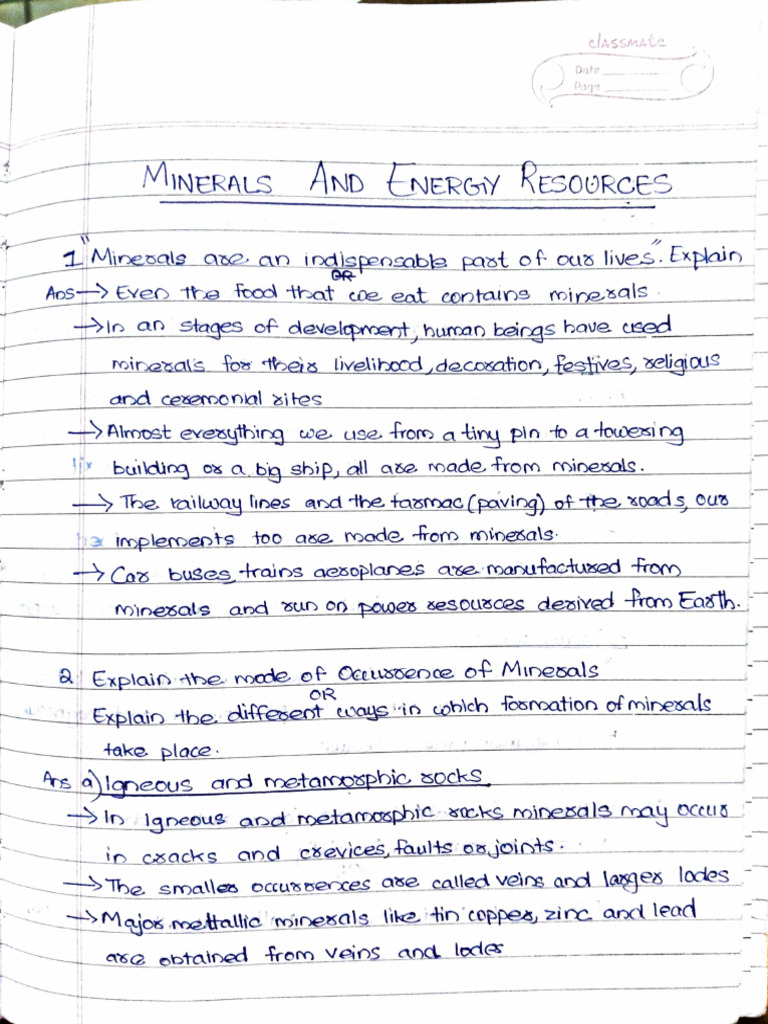 classmate
Date
Page
MINERALS AND ENERGY RESOURCES
1 "Minerals are an indispensable part of our lives". Explain
OR
Ans → Even the food that we eat contains minerals.
→ In an stages of development, human beings have used
minerals for their livelihood, decoration, festives, religious
and ceremonial rites
→ Almost everything we use from a tiny pin to a towering
building or a big ship, all are made from minerals.
→ The railway lines and the tarmac (paving) of the roads, our
implements too are made from minerals.
→ Car buses, trains aeroplanes are manufactured from
minerals and run on power resources derived from Earth.
2 Explain the mode of Occurrence of Minerals
OR
Explain the different ways in which formation of minerals
take place.
Ans a) Igneous and metamorphic rocks
→ In Igneous and metamorphic rocks minerals may occur
in cracks and crevices, faults or joints.
→ The smaller occurrences are called veins and larger lodes
→ Major mettallic minerals like tin copper, zinc and lead
are obtained from veins and lodes